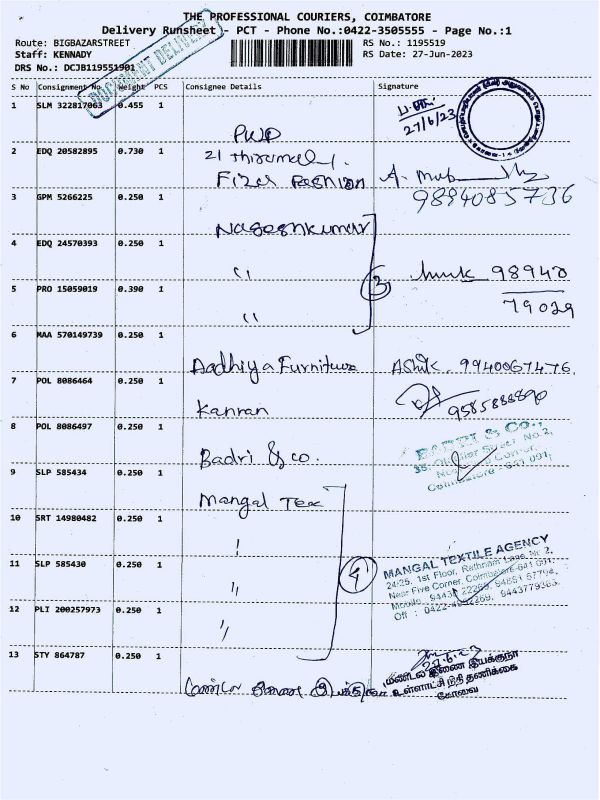 THE PROFESSIONAL COURIERS, COIMBATORE
Delivery Runsheet - PCT - Phone No.:0422-3505555 - Page No.:1
Route: BIGBAZARSTREET RS No.: 1195519
Staff: KENNADY RS Date: 27-Jun-2023
DRS No.: DCJB119551901
DOCUMENT DELIVERY
S No Consignment No Weight PCS Consignee Details Signature
1 SLM 322817063 0.455 1
27/6/23
PWD
2 EDQ 20582895 0.730 1 21
Fashion
9894085736
3 GPM 5266225 0.250 1
Nageshkumar
4 EDQ 24570393 0.250 1
" 98940
3
5 PRO 15059019 0.390 1 79029
"
6 MAA 570149739 0.250 1
Aadhiya Furniture Ashik 9940067476
7 POL 8086464 0.250 1
Kannan 9585888890
8 POL 8086497 0.250 1
BADRI & CO.,
Badri & Co.
Coimbatore - 641 001.
9 SLP 585434 0.250 1
Mangal Tex
10 SRT 14980482 0.250 1
"
11 SLP 585430 0.250 1
MANGAL TEXTILE AGENCY
24/25, 1st Floor, Rathnam Lane No: 2,
Near Five Corner, Coimbatore-641 001.
" 4
12 PLI 200257973 0.250 1
"
13 STY 864787 0.250 1
27.6.23
மண்டல இணை இயக்குநர்
உள்ளாட்சி நிதி தணிக்கை
கோவை